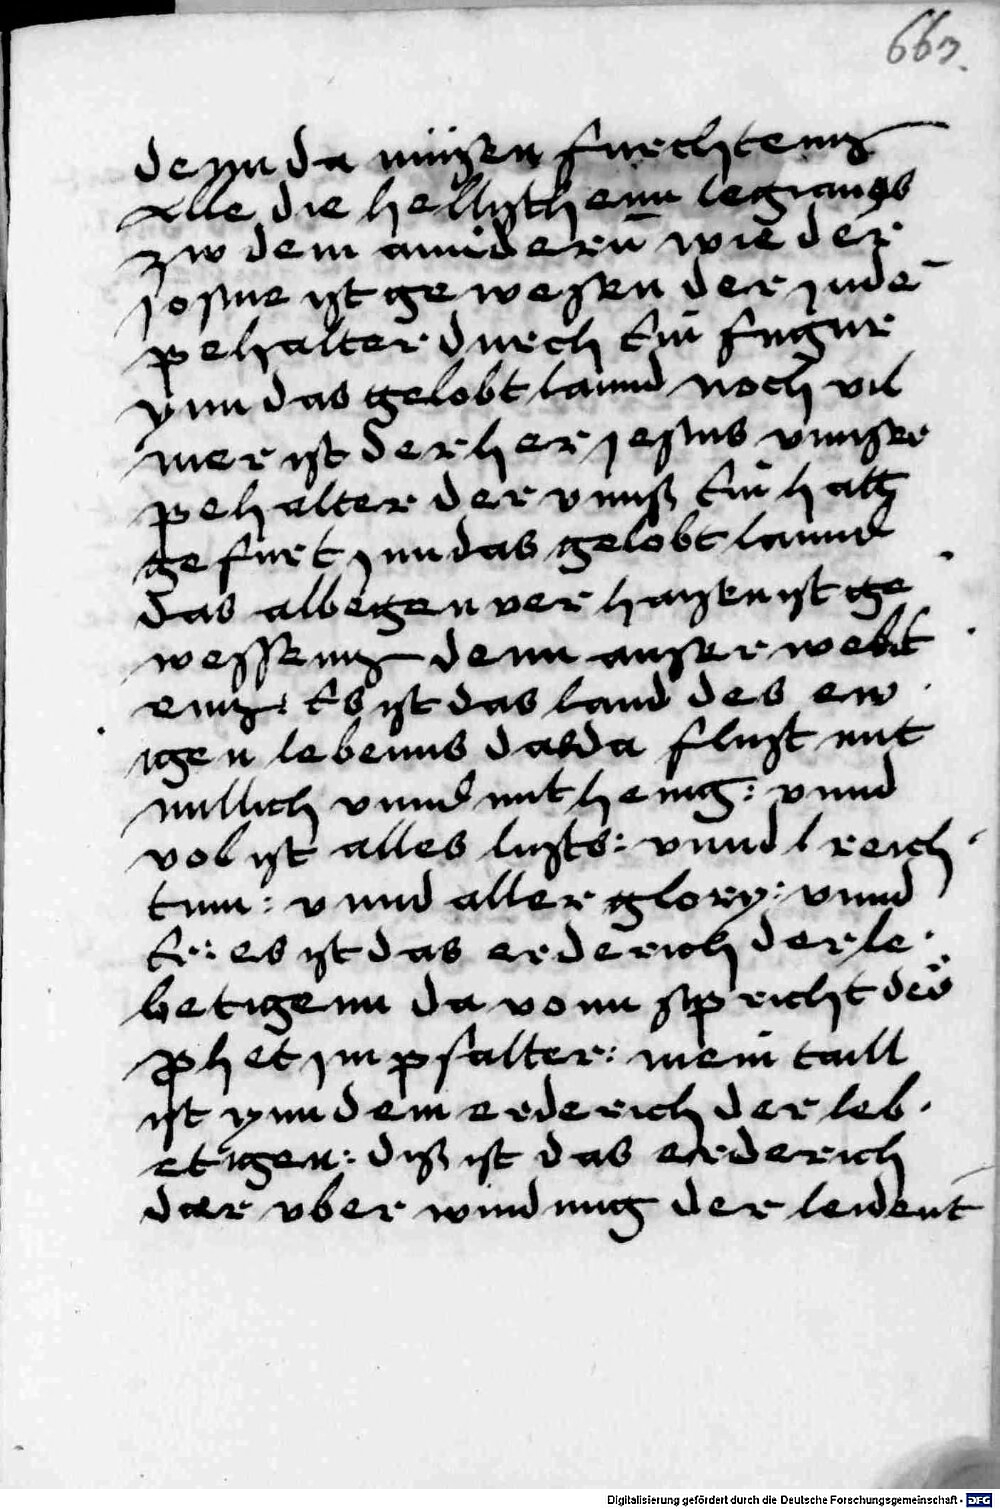 663.
denn da müssen furchtenn
Alle die hellischenn legiangs
zw dem annderñ wie der
josue ist gewesen der judē
pehalter durch Ein fugur
ynn das gelobt lannd noch vil
mer ist der her jesus vnnser
pehalter der vnnß Ein hatt
gefurt jnn das gelobt lannd
das albegen verhaysen ist ge
wessenn denn auserwelt
enn: Es ist das land des ew
igen lebenns da flust mit
millich vnnd mit henig: vnnd
vol ist alles lusts: vnnd reich
tum: vnnd aller glory: vnnd
Er: es ist das erderich der le
betigenn da vonn spricht der
prophet jm psalter: mein taill
ist ynn dem erderich der leb
etigen: diß ist das erderich
der vber windung der leident
Digitalisierung gefördert durch die Deutsche Forschungsgemeinschaft - DFG